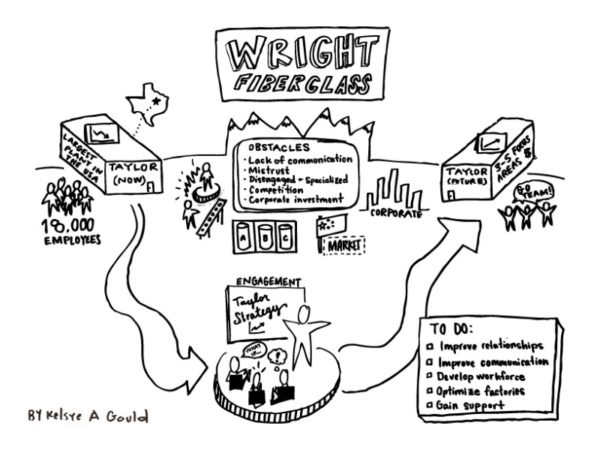 WRIGHT
FIBERGLASS
LARGEST
PLANT IN
THE US
TAYLOR
(NOW)
18,000
EMPLOYEES
OBSTACLES
• Lack of communication
• Mistrust
• Disengaged + Specialized
• Competition
• Corporate investment
A B C
MARKET
CORPORATE
TAYLOR
(FUTURE)
3-5 FOCUS
AREAS $
GO
TEAM!
ENGAGEMENT
Taylor
Strategy
WHAT
IF...
!
TO DO:
Improve relationships
Improve communication
Develop workforce
Optimize factories
Gain support
BY Kelsye A Gould